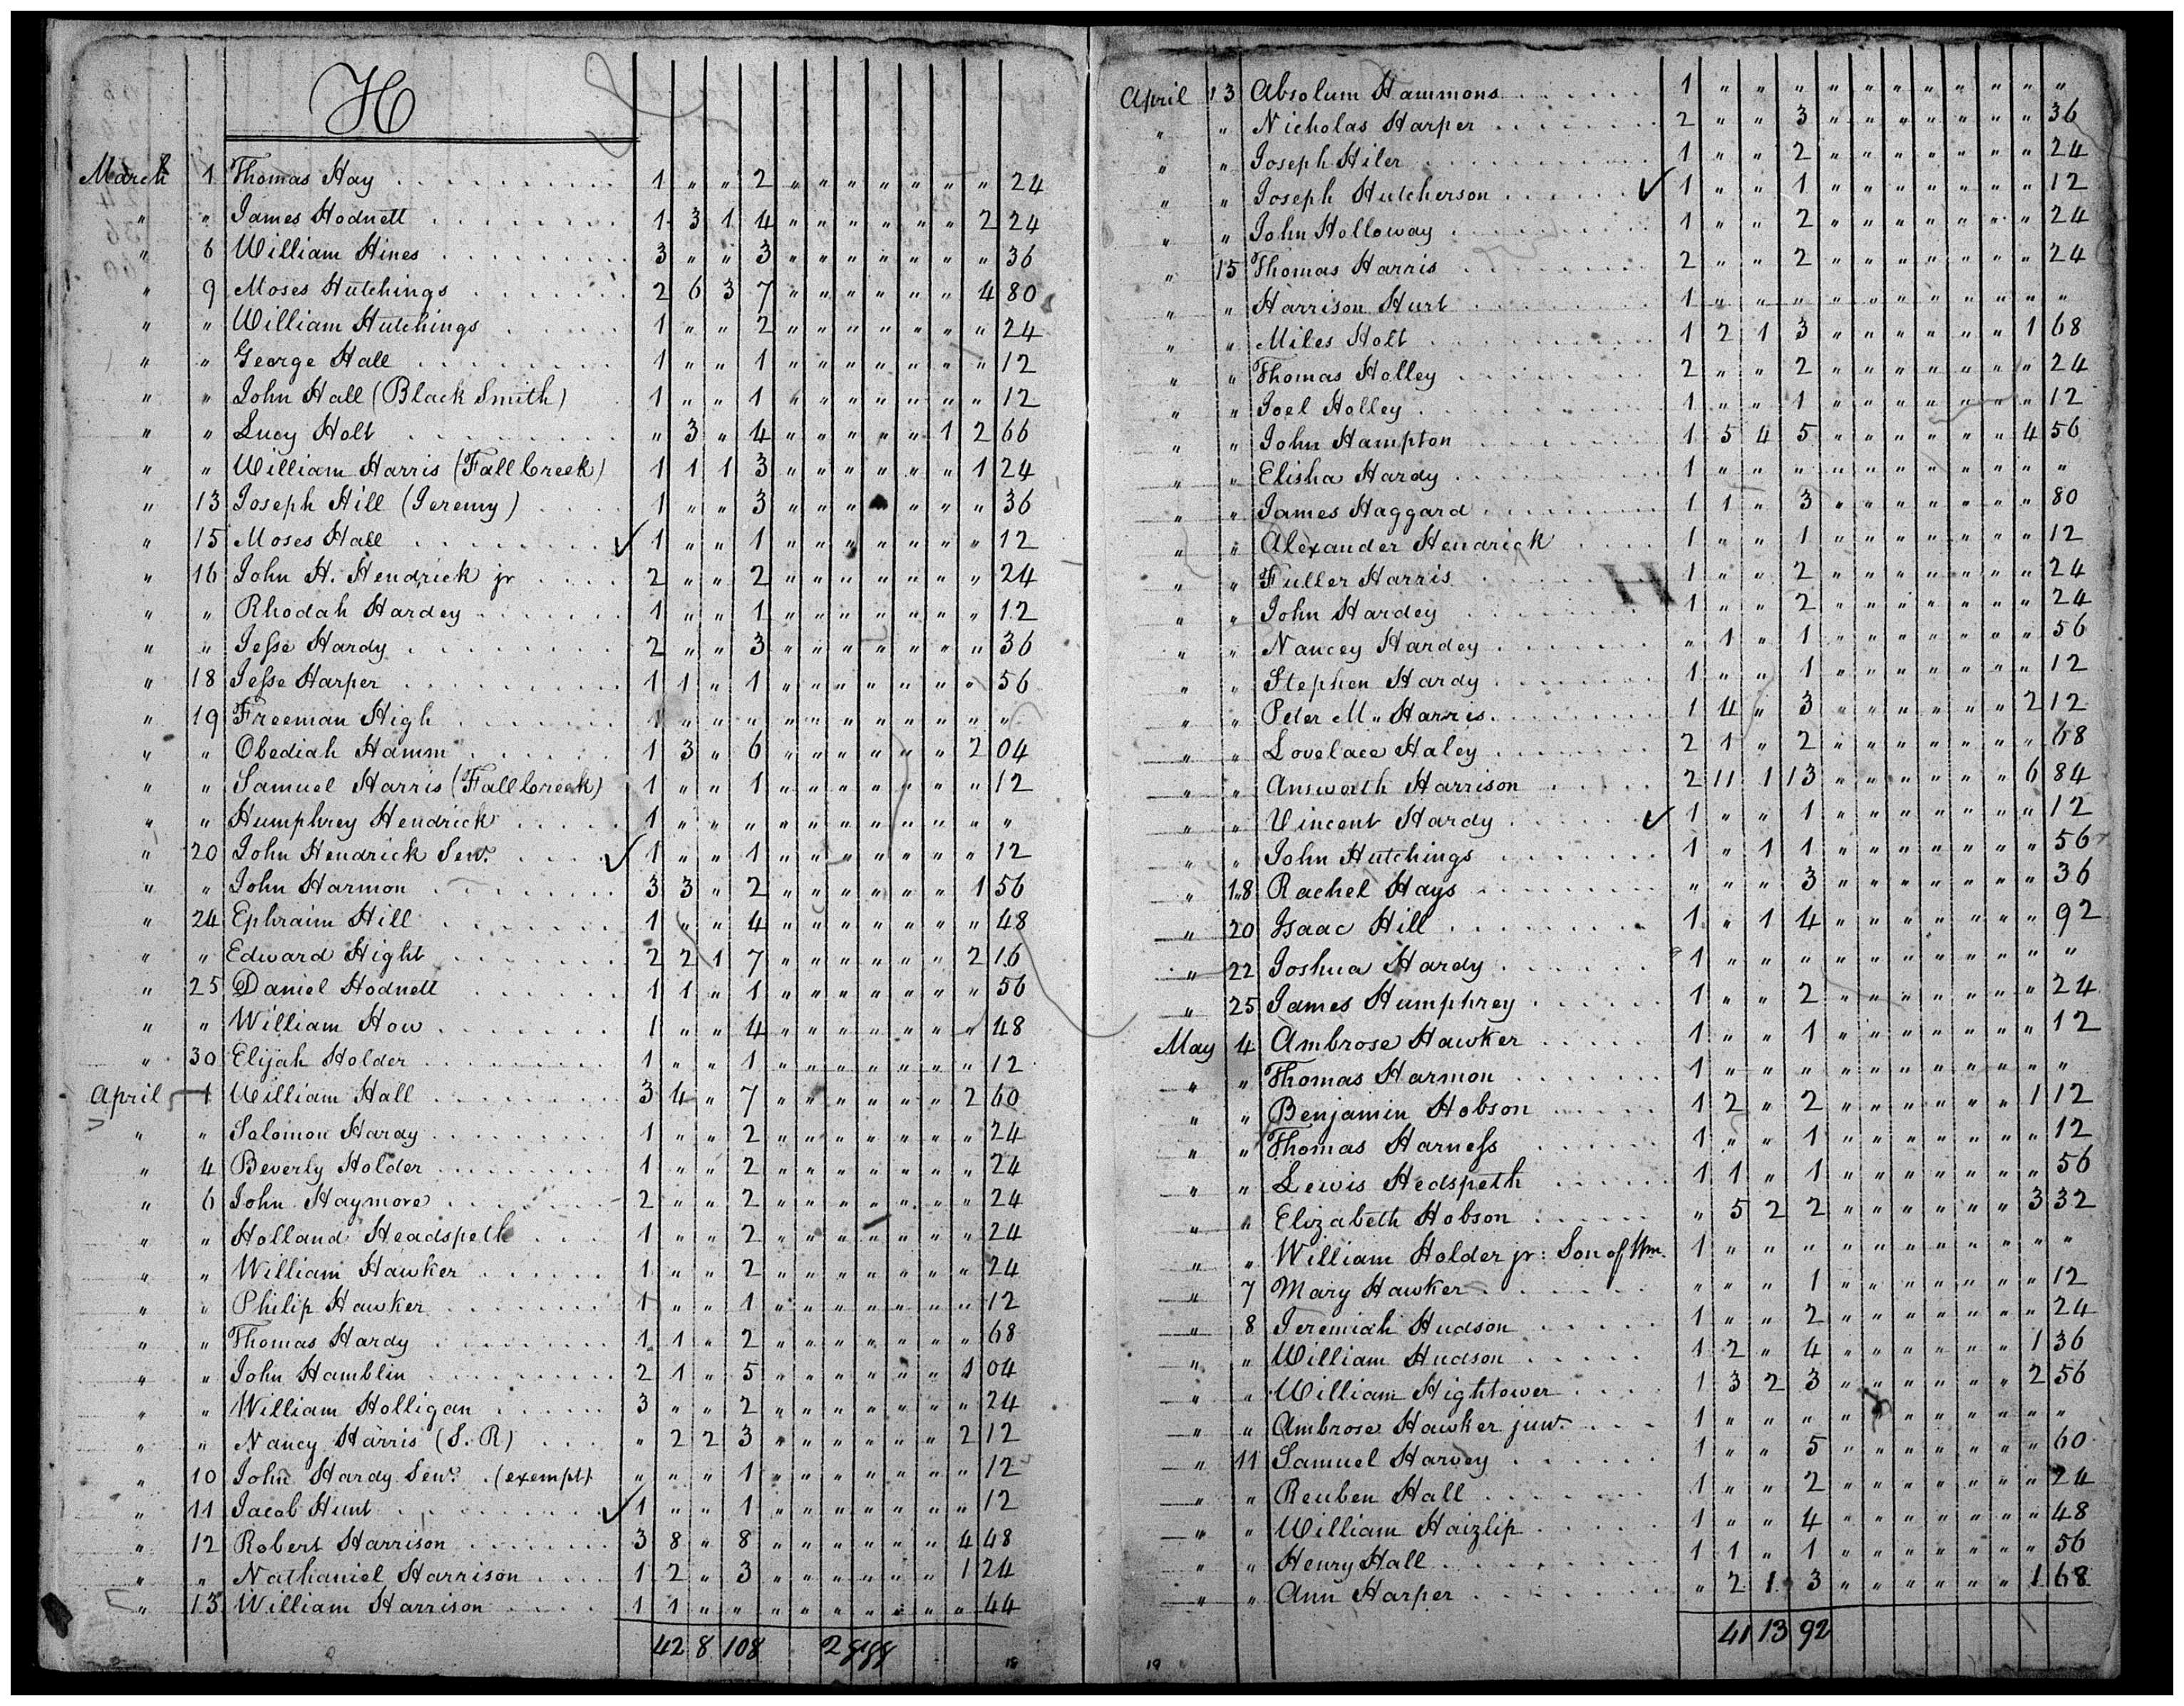 H
March 1 Thomas Hay 1 " " 2 " " " " " " " 24
" " James Hodnett 1 3 1 4 " " " " " " 2 24
" 6 William Hines 3 " " 3 " " " " " " " 36
" 9 Moses Hutchings 2 6 3 7 " " " " " " 4 80
" " William Hutchings 1 " " 2 " " " " " " " 24
" " George Hall 1 " " 1 " " " " " " " 12
" " John Hall (Black Smith) 1 " " 1 " " " " " " " 12
" " Lucy Holt " 3 " 4 " " " " " 1 2 66
" " William Harris (Fall Creek) 1 1 1 3 " " " " " " 1 24
" 13 Joseph Hill (Jeremy) 1 " " 3 " " " " " " " 36
" 15 Moses Hall ✓ 1 " " 1 " " " " " " " 12
" 16 John H. Hendrick jr 2 " " 2 " " " " " " " 24
" " Rhodah Hardey 1 " " 1 " " " " " " " 12
" " Jesse Hardy 2 " " 3 " " " " " " " 36
" 18 Jesse Harper 1 1 " 1 " " " " " " " 56
" 19 Freeman High 1 " " " " " " " " " " "
" " Obediah Hamm 1 3 " 6 " " " " " " 2 04
" " Samuel Harris (Fall Creek) 1 " " 1 " " " " " " " 12
" " Humphrey Hendrick 1 " " " " " " " " " " "
" 20 John Hendrick Senr. ✓ 1 " " 1 " " " " " " " 12
" " John Harmon 3 3 " 2 " " " " " " 1 56
" 24 Ephraim Hill 1 " " 4 " " " " " " " 48
" " Edward Hight 2 2 1 7 " " " " " " 2 16
" 25 Daniel Hodnett 1 1 " 1 " " " " " " " 56
" " William How 1 " " 4 " " " " " " " 48
" 30 Elijah Holder 1 " " 1 " " " " " " " 12
April 1 William Hall 3 4 " 7 " " " " " " 2 60
" " Solomon Hardy 1 " " 2 " " " " " " " 24
" 4 Beverly Holder 1 " " 2 " " " " " " " 24
" 6 John Haymore 2 " " 2 " " " " " " " 24
" " Holland Headspeth 1 " " 2 " " " " " " " 24
" " William Hawker 1 " " 2 " " " " " " " 24
" " Philip Hawker 1 " " 1 " " " " " " " 12
" " Thomas Hardy 1 1 " 2 " " " " " " " 68
" " John Hamblin 2 1 " 5 " " " " " " 1 04
" " William Holligan 3 " " 2 " " " " " " " 24
" " Nancy Harris (S. R) " 2 2 3 " " " " " " 2 12
" 10 John Hardy Senr. (exempt) " " " 1 " " " " " " " 12
" 11 Jacob Hunt ✓ 1 " " 1 " " " " " " " 12
" 12 Robert Harrison 3 8 " 8 " " " " " " 4 48
" " Nathaniel Harrison 1 2 " 3 " " " " " " 1 24
" 13 William Harrison 1 1 " " " " " " " " " 44
42 8 108 2
18
April 13 Absolum Hammons 1 " " " " " " " " " " "
" " Nicholas Harper 2 " " 3 " " " " " " " 36
" " Joseph Hiler 1 " " 2 " " " " " " " 24
" " Joseph Hutcherson ✓ 1 " " 1 " " " " " " " 12
" " John Holloway 1 " " 2 " " " " " " " 24
" 15 Thomas Harris 2 " " 2 " " " " " " " 24
" " Harrison Hurt 1 " " " " " " " " " " "
" " Miles Holt 1 2 1 3 " " " " " " 1 68
" " Thomas Holley 2 " " 2 " " " " " " " 24
" " Joel Holley 1 " " 1 " " " " " " " 12
" " John Hampton 1 5 4 5 " " " " " " 4 56
" " Elisha Hardy 1 " " " " " " " " " " "
" " James Haggard 1 1 " 3 " " " " " " " 80
" " Alexander Hendrick 1 " " 1 " " " " " " " 12
" " Fuller Harris 1 " " 2 " " " " " " " 24
" " John Hardey 1 " " 2 " " " " " " " 24
" " Nancey Hardey " 1 " 1 " " " " " " " 56
" " Stephen Hardy 1 " " 1 " " " " " " " 12
" " Peter M. Harris 1 4 " 3 " " " " " " 2 12
" " Lovelace Haley 2 1 " 2 " " " " " " " 68
" " Answorth Harrison 2 11 1 13 " " " " " " 6 84
" " Vincent Hardy ✓ 1 " " 1 " " " " " " " 12
" " John Hutchings 1 " 1 1 " " " " " " " 56
" 18 Rachel Hays " " " 3 " " " " " " " 36
" 20 Isaac Hill 1 " 1 4 " " " " " " " 92
" 22 Joshua Hardy 1 " " " " " " " " " " "
" 25 James Humphrey 1 " " 2 " " " " " " " 24
May 4 Ambrose Hawker 1 " " 1 " " " " " " " 12
" " Thomas Harmon 1 " " " " " " " " " " "
" " Benjamin Hobson 1 2 " 2 " " " " " " 1 12
" " Thomas Harness 1 " " 1 " " " " " " " 12
" " Lewis Hedspeth 1 1 " 1 " " " " " " " 56
" " Elizabeth Hobson " 5 2 2 " " " " " " 3 32
" " William Holder jr: Son of Wm. 1 " " " " " " " " " " "
" 7 Mary Hawker " " " 1 " " " " " " " 12
" 8 Jeremiah Hudson 1 " " 2 " " " " " " " 24
" " William Hudson 1 2 " 4 " " " " " " 1 36
" " William Hightower 1 3 2 3 " " " " " " 2 56
" " Ambrose Hawker junr. 1 " " " " " " " " " " "
" 11 Samuel Harvey 1 " " 5 " " " " " " " 60
" " Reuben Hall 1 " " 2 " " " " " " " 24
" " William Haizlip 1 " " 4 " " " " " " " 48
" " Henry Hall 1 1 " 1 " " " " " " " 56
" " Ann Harper " 2 1 3 " " " " " " 1 68
41 13 92
19